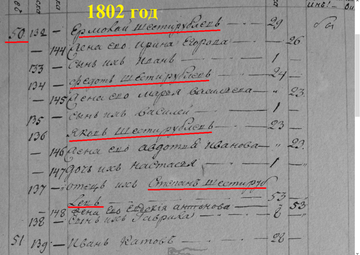 1802 год
50 132 — Ермолай Шестирублевъ — 29
144 Жена ево Ирина Егорова — 26
133 — Сынъ ихъ Иванъ — 1
134 — Федотъ Шестирублевъ — 24
145 Жена ево Марья Васильева — 23
135 — Сынъ ихъ Василей — 1
136 Якевъ Шестирублевъ — 23
146 Жена ево Авдотья Иванова — 23
147 Дочь ихъ Настасья — 1
137 — отецъ ихъ Степанъ Шестируб
левъ — 53
148 Жена ево Евдокия Антонова — 53
138 — Сынъ ихъ Гаврила — 6
51 139 — Иванъ — 26